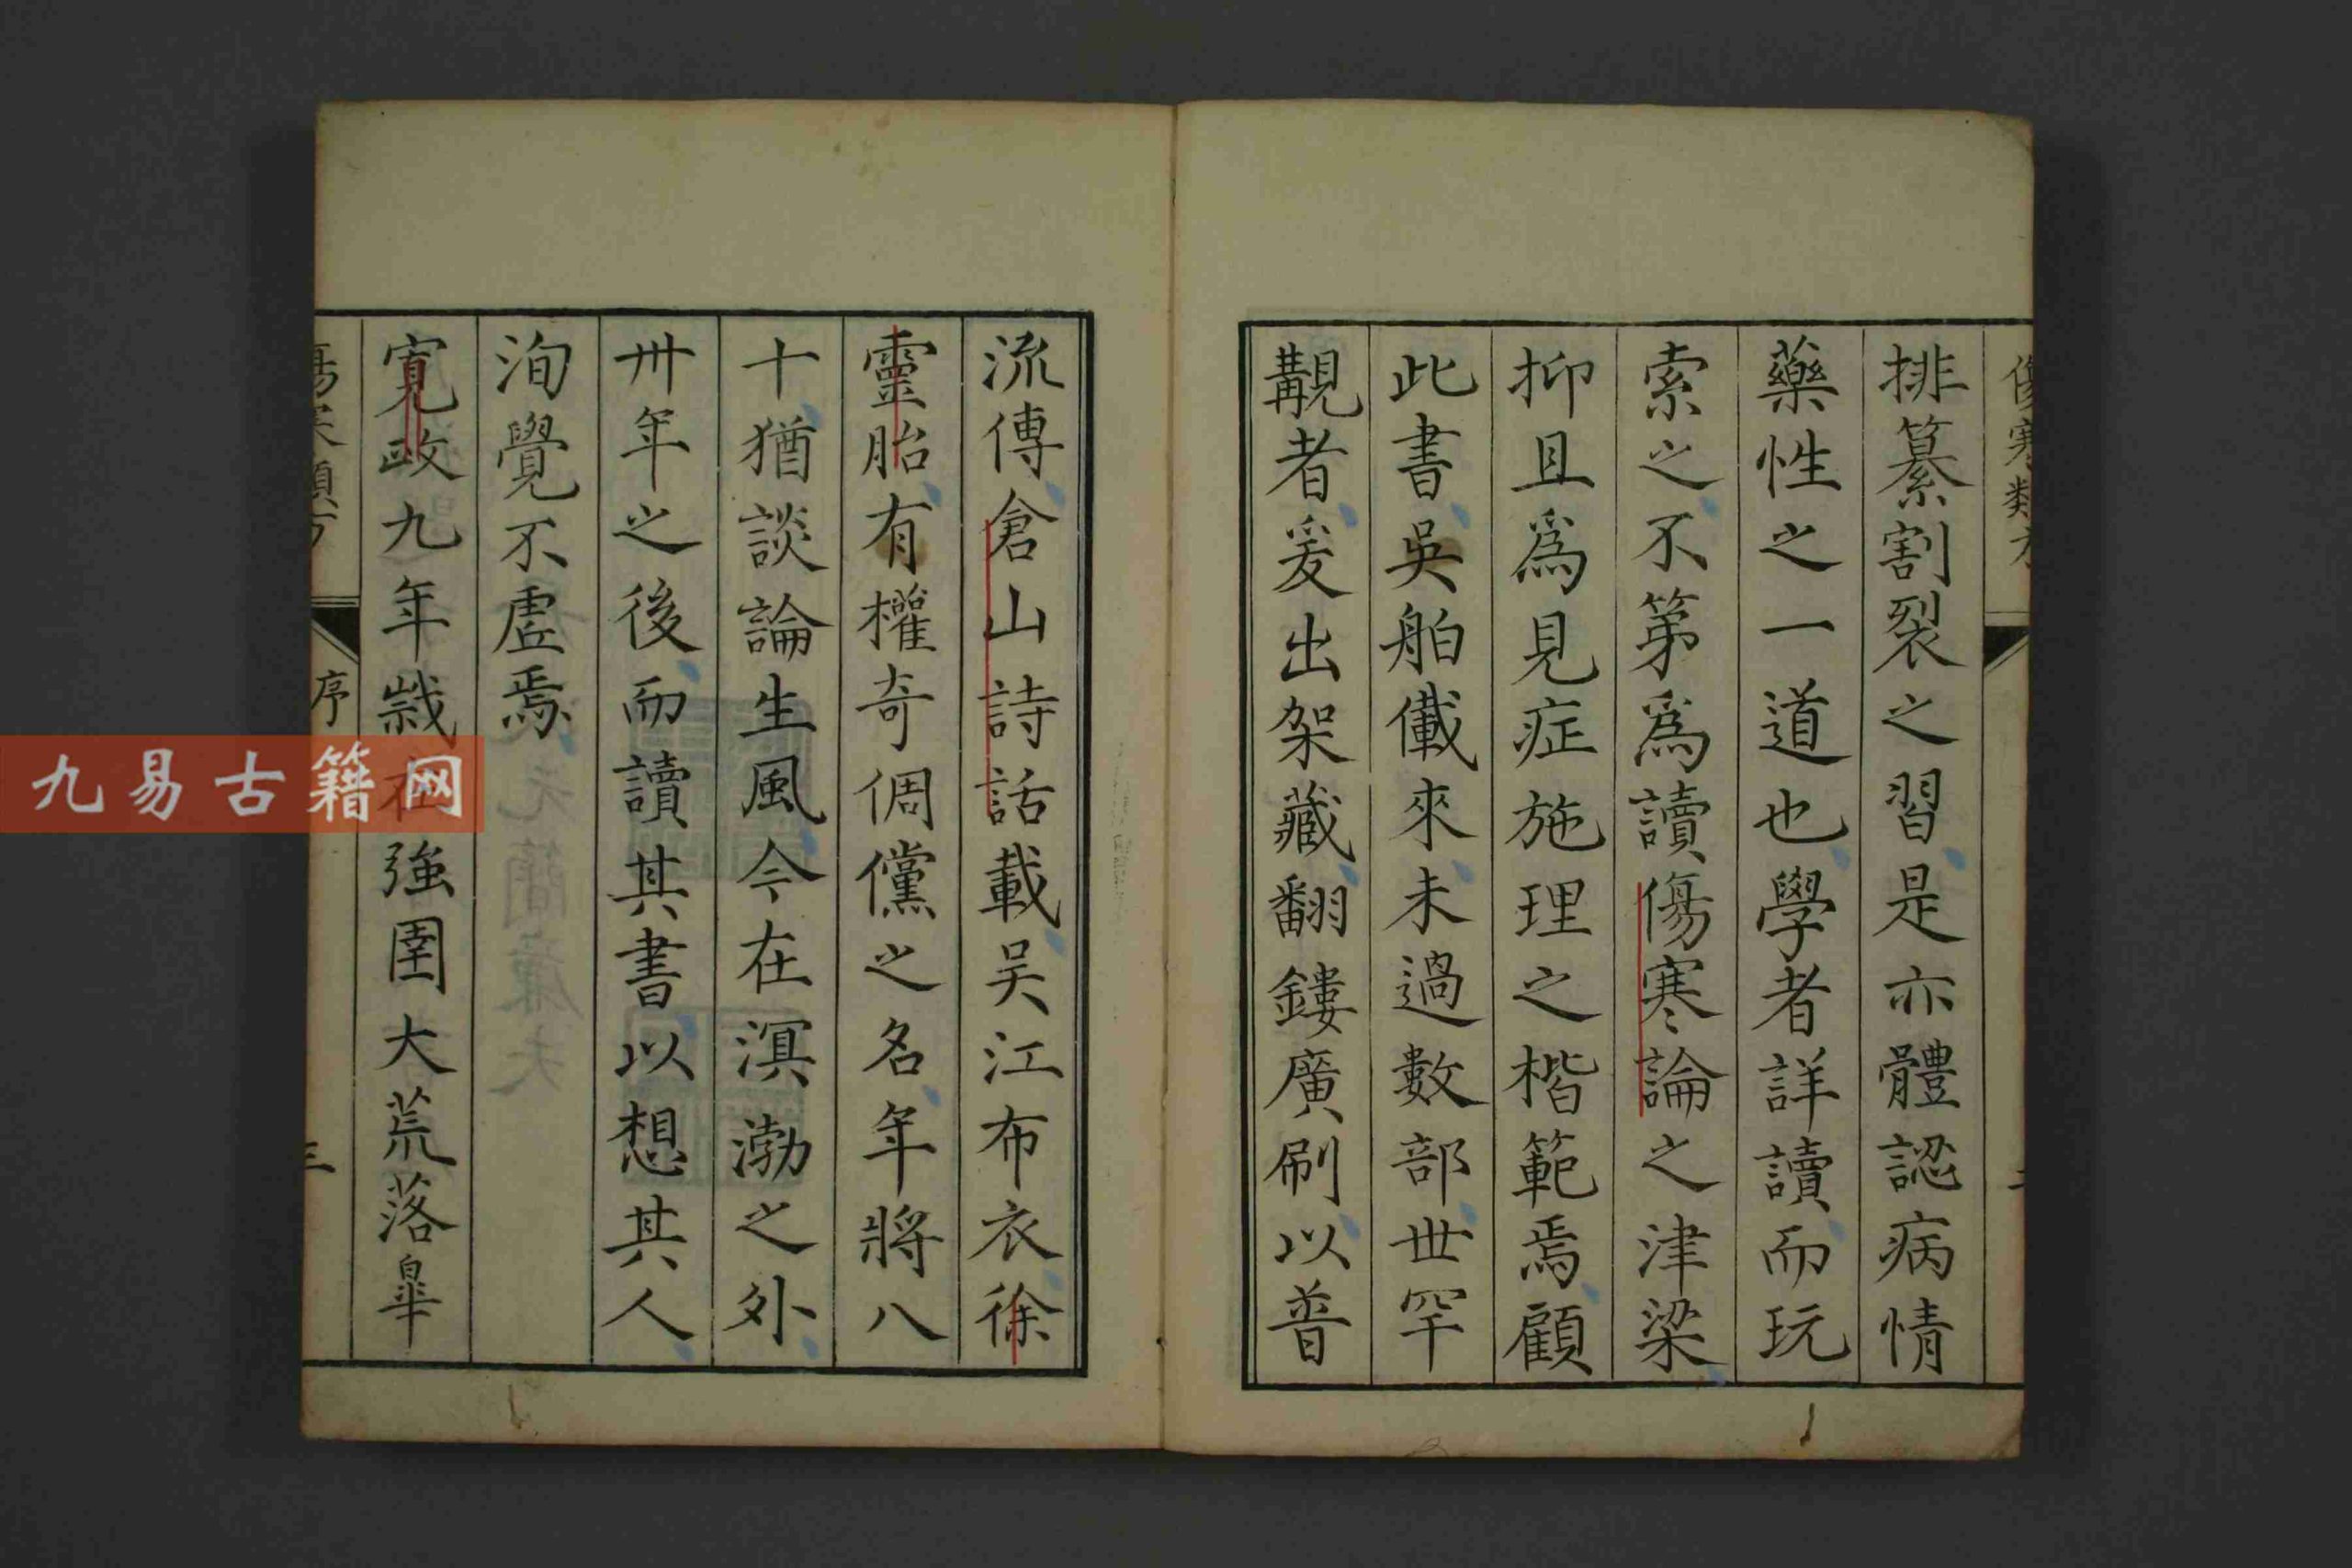 排纂割裂之習是亦體認病情
藥性之一道也學者詳讀而玩
索之不第爲讀傷寒論之津梁
抑且爲見症施理之楷範焉顧
此書吳舶儎來未過數部世罕
覯者爰出架藏翻鏤廣刷以普
流傳倉山詩話載吴江布衣徐
靈胎有權奇倜儻之名年將八
十猶談論生風今在溟渤之外
卅年之後而讀其書以想其人
洵覺不虛焉
寬政九年歲在強圉大荒落皐
傷寒類方
序
三
九易古籍网